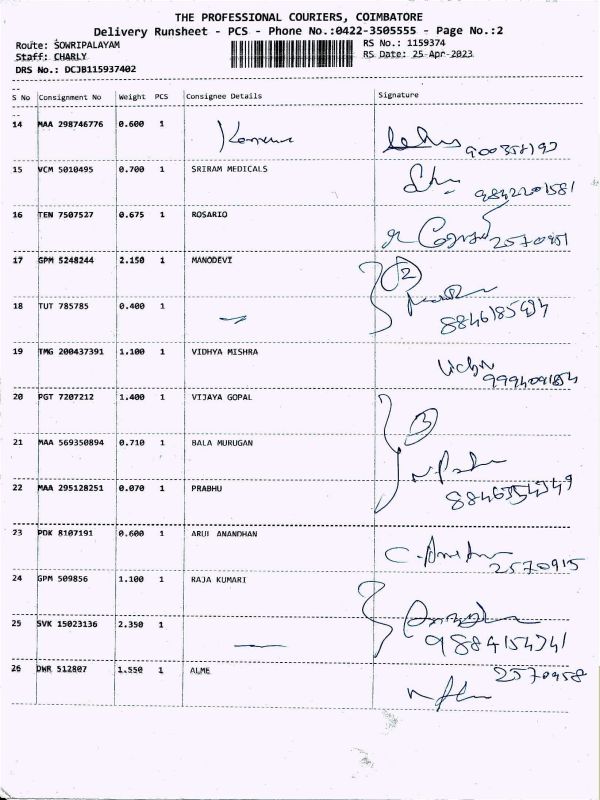 THE PROFESSIONAL COURIERS, COIMBATORE
Delivery Runsheet - PCS - Phone No.:0422-3505555 - Page No.:2
Route: SOWRIPALAYAM RS No.: 1159374
Staff: CHARLY RS Date: 25-Apr-2023
DRS No.: DCJB115937402
S No Consignment No Weight PCS Consignee Details Signature
14 MAA 298746776 0.600 1
15 VCM 5010495 0.700 1 SRIRAM MEDICALS
9842201581
16 TEN 7507527 0.675 1 ROSARIO
17 GPM 5248244 2.150 1 MANODEVI
2
18 TUT 785785 0.400 1
19 TMG 200437391 1.100 1 VIDHYA MISHRA
20 PGT 7207212 1.400 1 VIJAYA GOPAL
3
21 MAA 569350894 0.710 1 BALA MURUGAN
22 MAA 295128251 0.070 1 PRABHU
23 PDK 8107191 0.600 1 ARUL ANANDHAN
2570915
24 GPM 509856 1.100 1 RAJA KUMARI
25 SVK 15023136 2.350 1
9884154741
26 DWR 512807 1.550 1 ALME
2570458